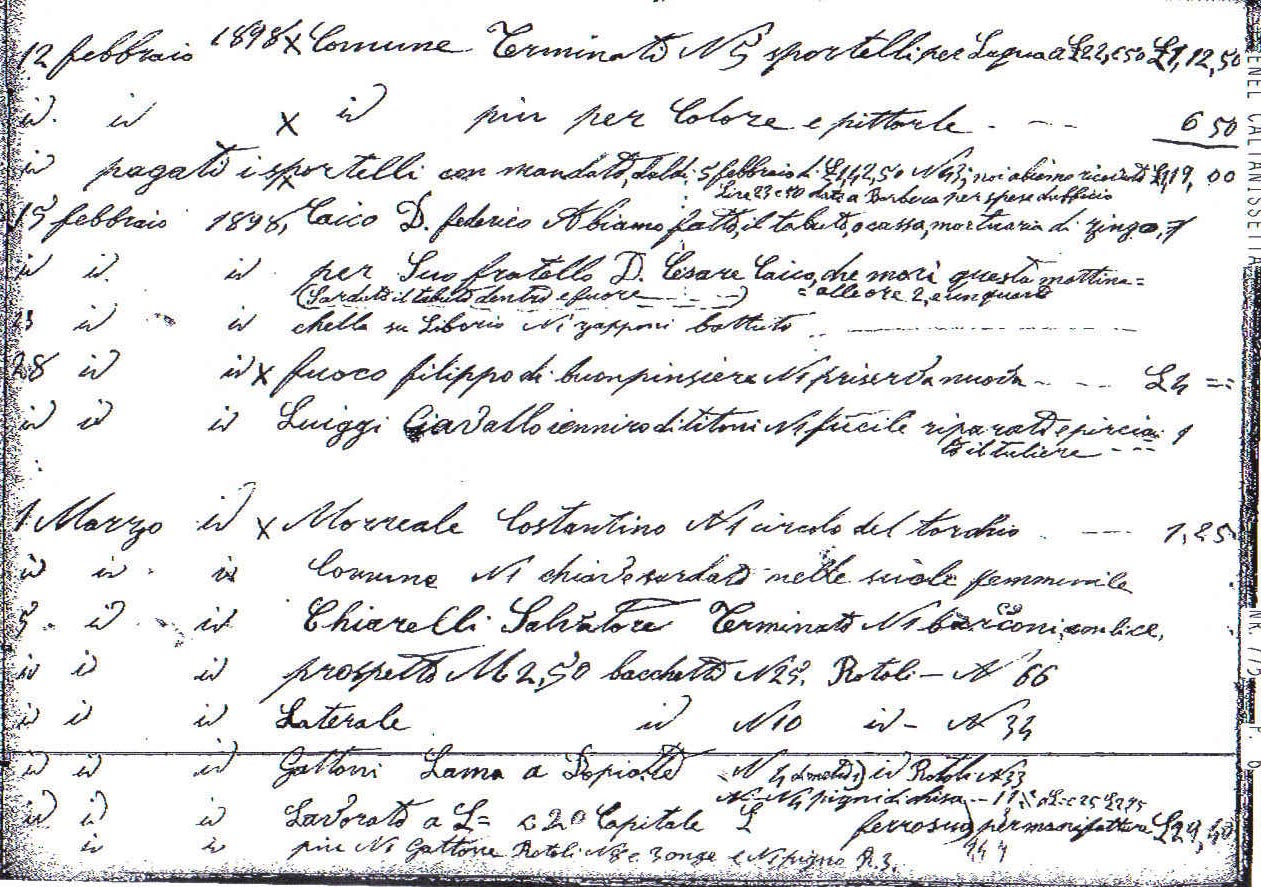 12 febbraio 1898 x Comune Terminato N 5 sportelli per L'aqua a L 22, c 50 L 1,12,50
id id x id piu per Colore e pittarle - -- 6 50
id pagato i sportelli con mandato, dal dì 5 febbraio di L 142,50 N 43, noi abiamo ricevuto L 119, 00
Lire 23 c 50 date a Barbera per spese d'ufficio
15 febbraio 1898, Caico D. federico Abiamo fatto, il tabuto, o cassa, mortuaria di zingo, 7
id id. id per Suo fratello D. Cesare Caico, che morì questa mattina =
(Sardato il tabuto dentro e fuore - - -) = alle ore 2, e un quarto
23 id id chella su Liborio N 1 zapponi battuto
28 id id x fuoco filippo di buonpinsiere N 1 priserva nuova - -- L 4 =
id id id Luiggi N 1 fucile riparato e pirciai 1
to il tuliere - --
1 Marzo id x Morreale Costantino N 1 circolo del torchio -- 1,25
id id id Comune N 1 chiave sardato nelle scuole femminile
5 id id. Chiarelli Salvatore Terminato N 1 barconi,
id id id prospetto M 2,50 bacchette N 25. Rotoli - N 66
id id id Laterale id N 10 id - N 34
id id id Gattoni Lama a N 4 id Rotoli N 33
id id id Lavorato a L = c 20 Capitale L ferro suo) per manifattura L 29,40
id id piu N 1 Gattone Rotoli c 3 onze e N 1 pigno R 3.
ENEL CALTANISSETTA
NR. 775